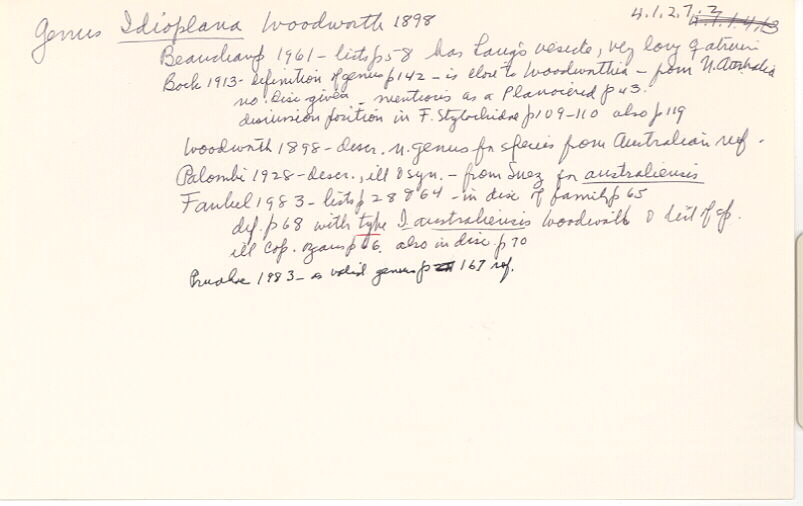 Genus Idioplana Woodworth 1898
4.1.2.7.2
Beauchamp 1961 - lists p58 has Lang's vesicle, very long ♀ atrium
Bock 1913 - definition of genus p142 - is close to Woodworthia - from N. Australia
no disc given - mentions as a Planocerid p43.
discussion position in F. Stylochidae p109-110 also p119
Woodworth 1898 - descr. n. genus for species from Australian reef.
Palombi 1928 - descr., ill & syn. - from Suez for australiensis
Faubel 1983 - lists p28 & 64 - in disc of family p65
def. p68 with type I australiensis Woodworth & list of sp.
ill cop. organs p 6. also in disc p70
Prudhoe 1983 - as valid genus p 167 ref.